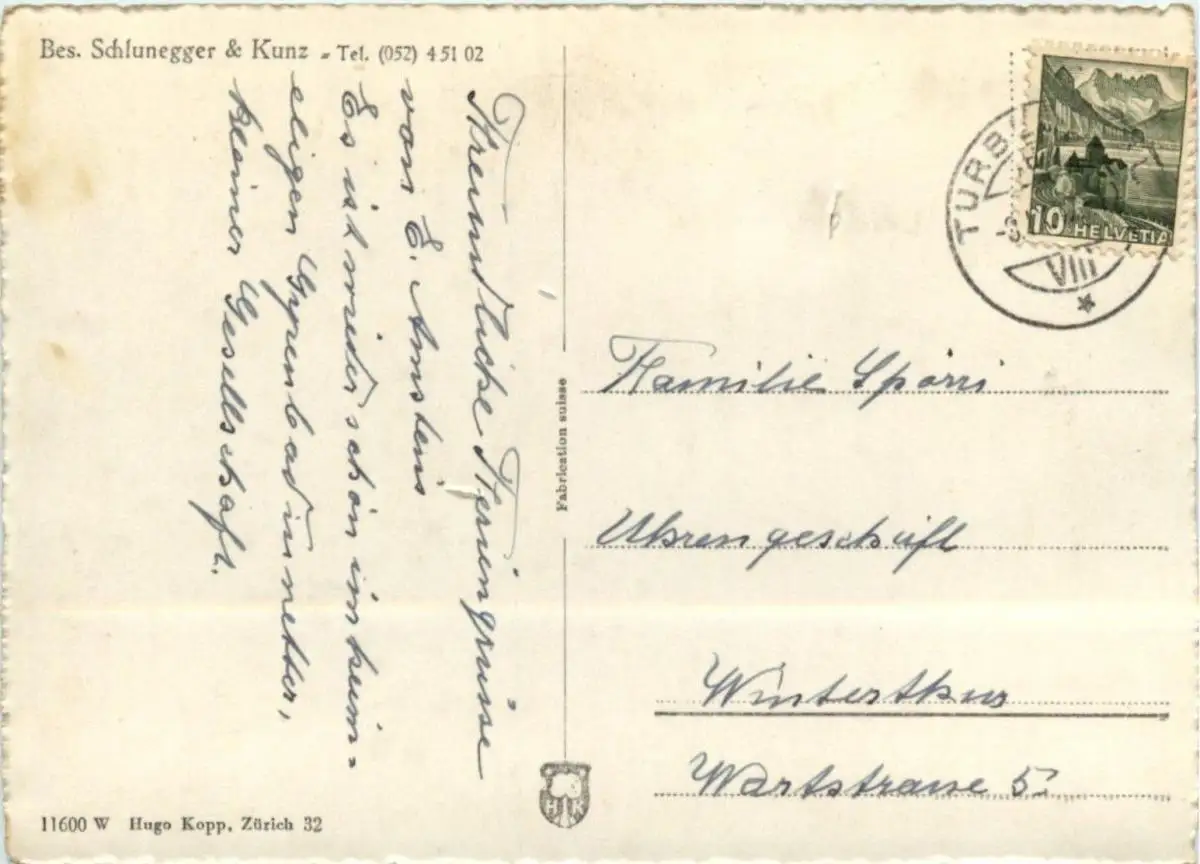 Bes. Schlunegger & Kunz - Tel. (052) 4 51 02
Freundliche Feriengrüsse
von E. Amstein
Es ist wieder schön im heim=
eligen Gyrenbad in netter,
kleiner Gesellschaft.
Fabrication suisse
HK
11600 W Hugo Kopp, Zürich 32
TURB
VIII
10 HELVETIA
Familie Spörri
Uhrengeschäft
Winterthur
Wartstrasse 5.